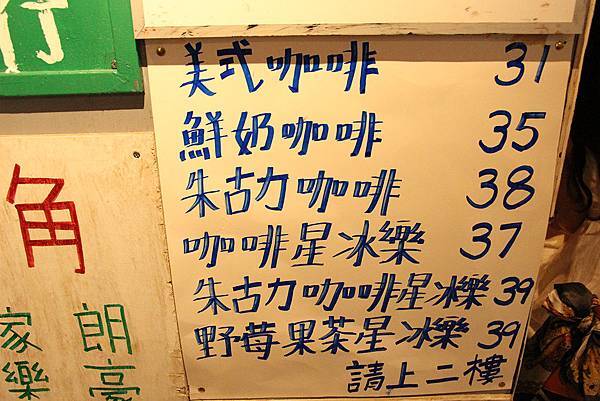 行
美式咖啡 31
鮮奶咖啡 35
朱古力咖啡 38
咖啡星冰樂 37
朱古力咖啡星冰樂 39
野莓果茶星冰樂 39
請上二樓
角
家 朗
樂 豪